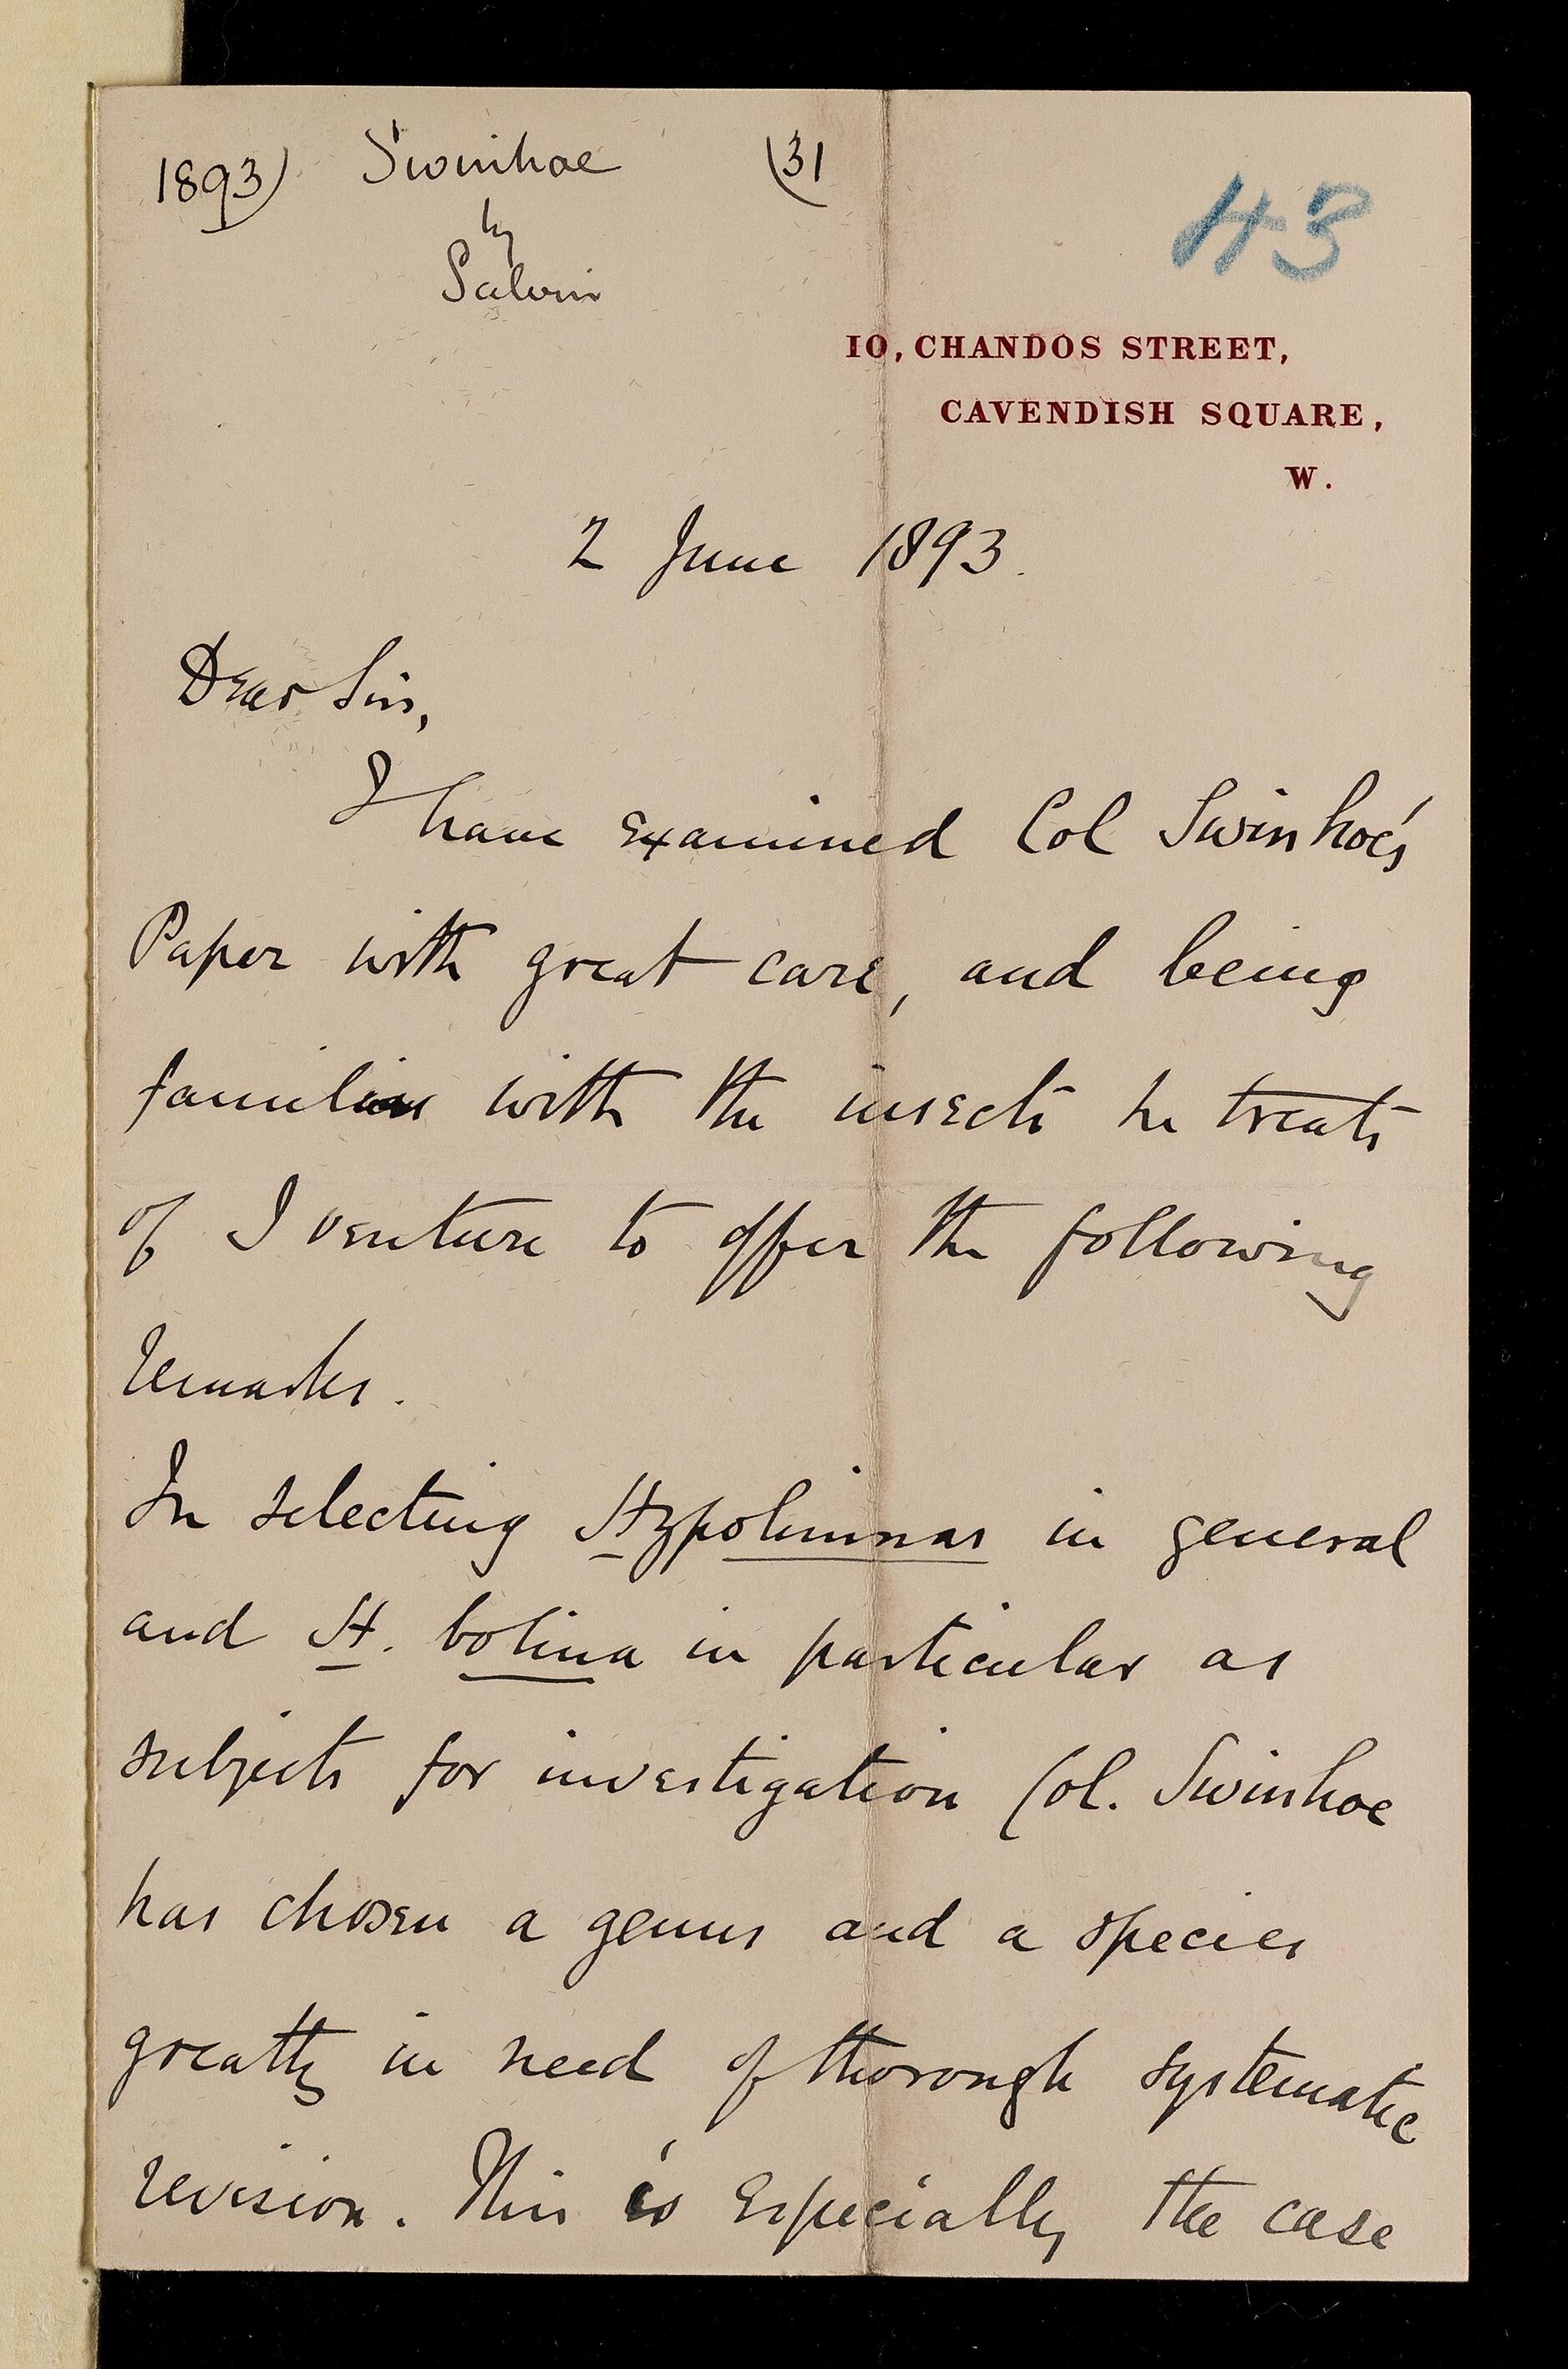 1893) Swinhoe (31
by
Salvin
43
10, CHANDOS STREET,
CAVENDISH SQUARE,
W.
2 June 1893.
Dear Sir,
I have examined Col Swinhoe's
Paper with great care, and being
familiar with the insects he treats
of I venture to offer the following
remarks.
In selecting Hypolimnas in general
and H. bolina in particular as
subjects for investigation Col. Swinhoe
has chosen a genus and a species
greatly in need of thorough systematic
revision. This is especially the case